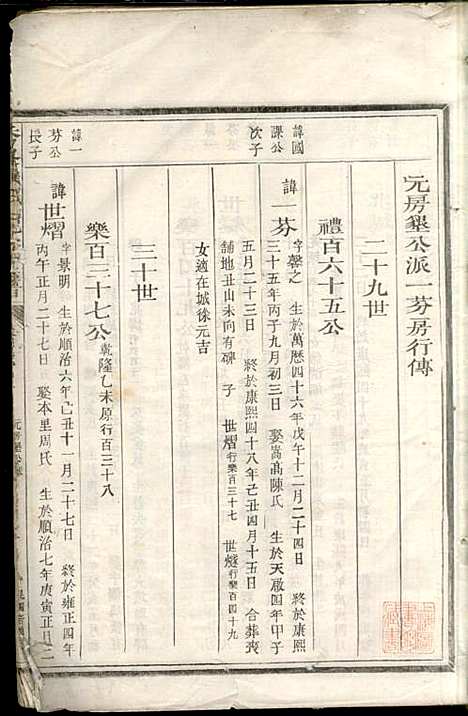 元房墾公派一芬房行傳
二十九世
諱國
課公
次子
禮百六十五公
諱一芬 字馨之 生於萬歷四十六年戊午十二月二十四日 終於康熙
三十五年丙子九月初三日 娶嵩高陳氏 生於天啟四年甲子
五月二十三日 終於康熙四十八年己丑四月十五日 合葬莢
舖地丑山未向有碑 子 世熠行樂百三十七 世燧行樂百四十九
女適在城徐元吉
三十世
諱一
芬公
長子
樂百三十七公乾隆乙未原行百三十八
諱世熠 字景明 生於順治六年己丑十一月二十七日 終於雍正四年
丙午正月二十七日 娶本里周氏 生於順治七年庚寅正月二
元房墾公派